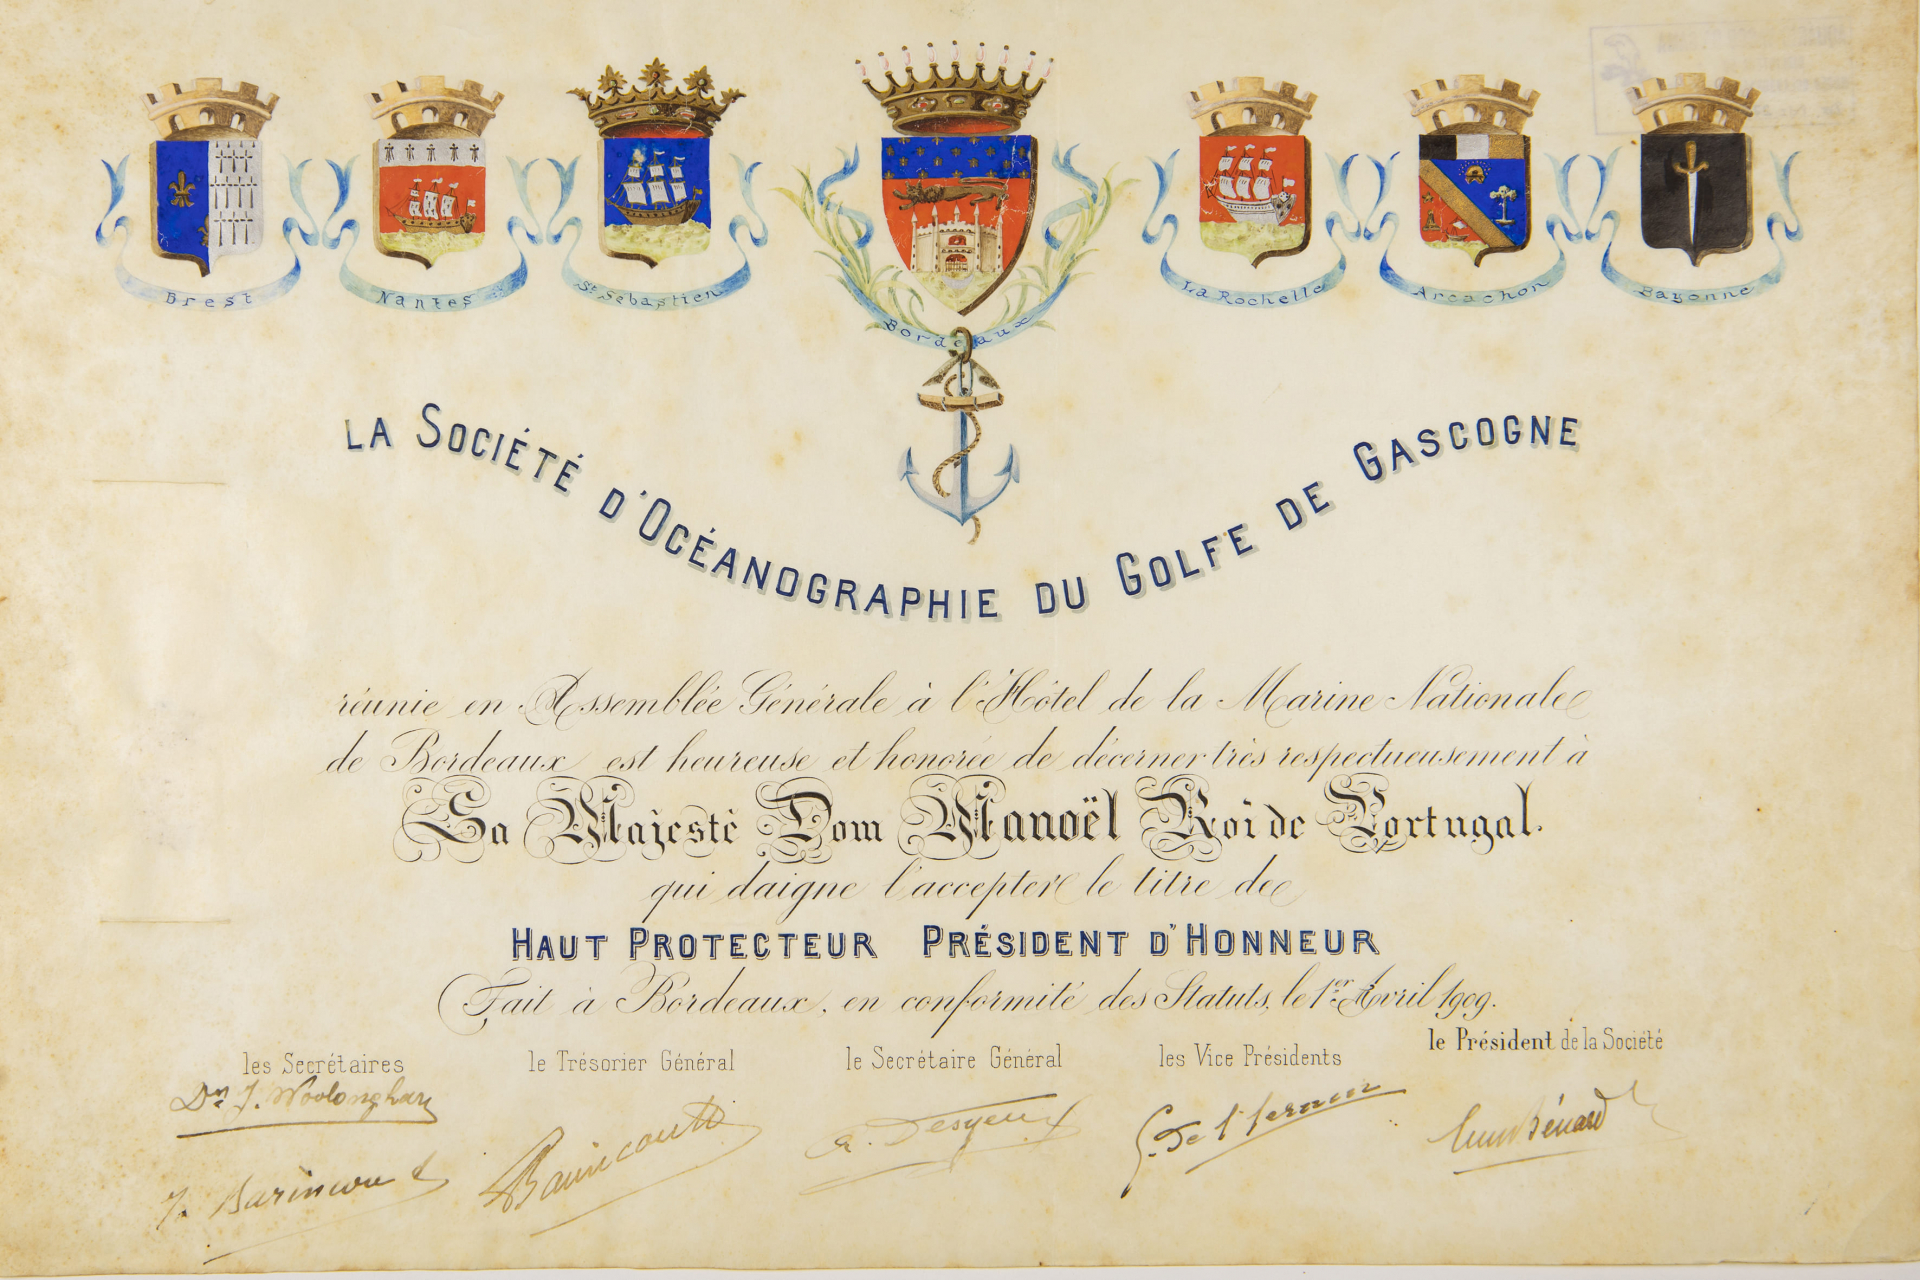 Brest
Nantes
St Sébastien
Bordeaux
La Rochelle
Arcachon
Bayonne
LA SOCIÉTÉ D'OCÉANOGRAPHIE DU GOLFE DE GASCOGNE
réunie en Assemblée Générale à l'Hôtel de la Marine Nationale
de Bordeaux est heureuse et honorée de décerner très respectueusement à
Sa Majesté Dom Manoël Roi de Portugal.
qui daigne l'accepter le titre de
HAUT PROTECTEUR PRÉSIDENT D'HONNEUR
Fait à Bordeaux, en conformité des Statuts, le 1er Avril 1909.
les Secrétaires
le Trésorier Général
le Secrétaire Général
les Vice Présidents
le Président de la Société
Bénard